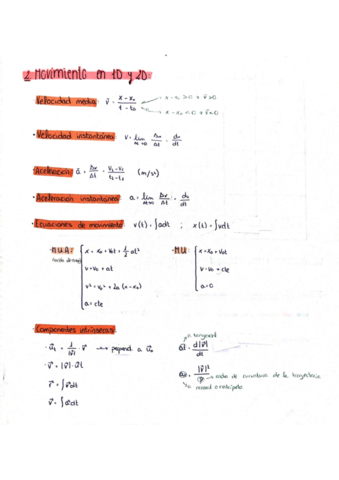 2. Movimiento en 1D y 2D:
Velocidad media: v̄ = (x - x₀)/(t - t₀) → x - x₀ > 0 = v̄ > 0
→ x - x₀ < 0 = v̄ < 0
· Velocidad instantánea: v = lim Δt→0 Δx/Δt = dx/dt
Aceleración: ā = Δv/Δt = (v₂ - v₁)/(t₂ - t₁) (m/s²)
· Aceleración instantánea: a = lim Δt→0 Δv/Δt = dv/dt
· Ecuaciones de movimiento: v(t) = ∫adt ; x(t) = ∫vdt
· M.U.A: x = x₀ + v₀t + 1/2 at²
v = v₀ + at
v² = v₀² + 2a (x - x₀)
a = cte
· MU: x = x₀ + v₀t
v = v₀ = cte
a = 0
Componentes intrínsecas:
· u⃗t = 1/|v⃗| · v⃗
· v⃗ = |v⃗| · u⃗t
r⃗ = ∫v⃗dt
v⃗ = ∫a⃗dt
tangencial
at = d|v⃗|/dt
an = |v⃗|²/ρ → radio de curvatura de la trayectoria
normal o centrípeta